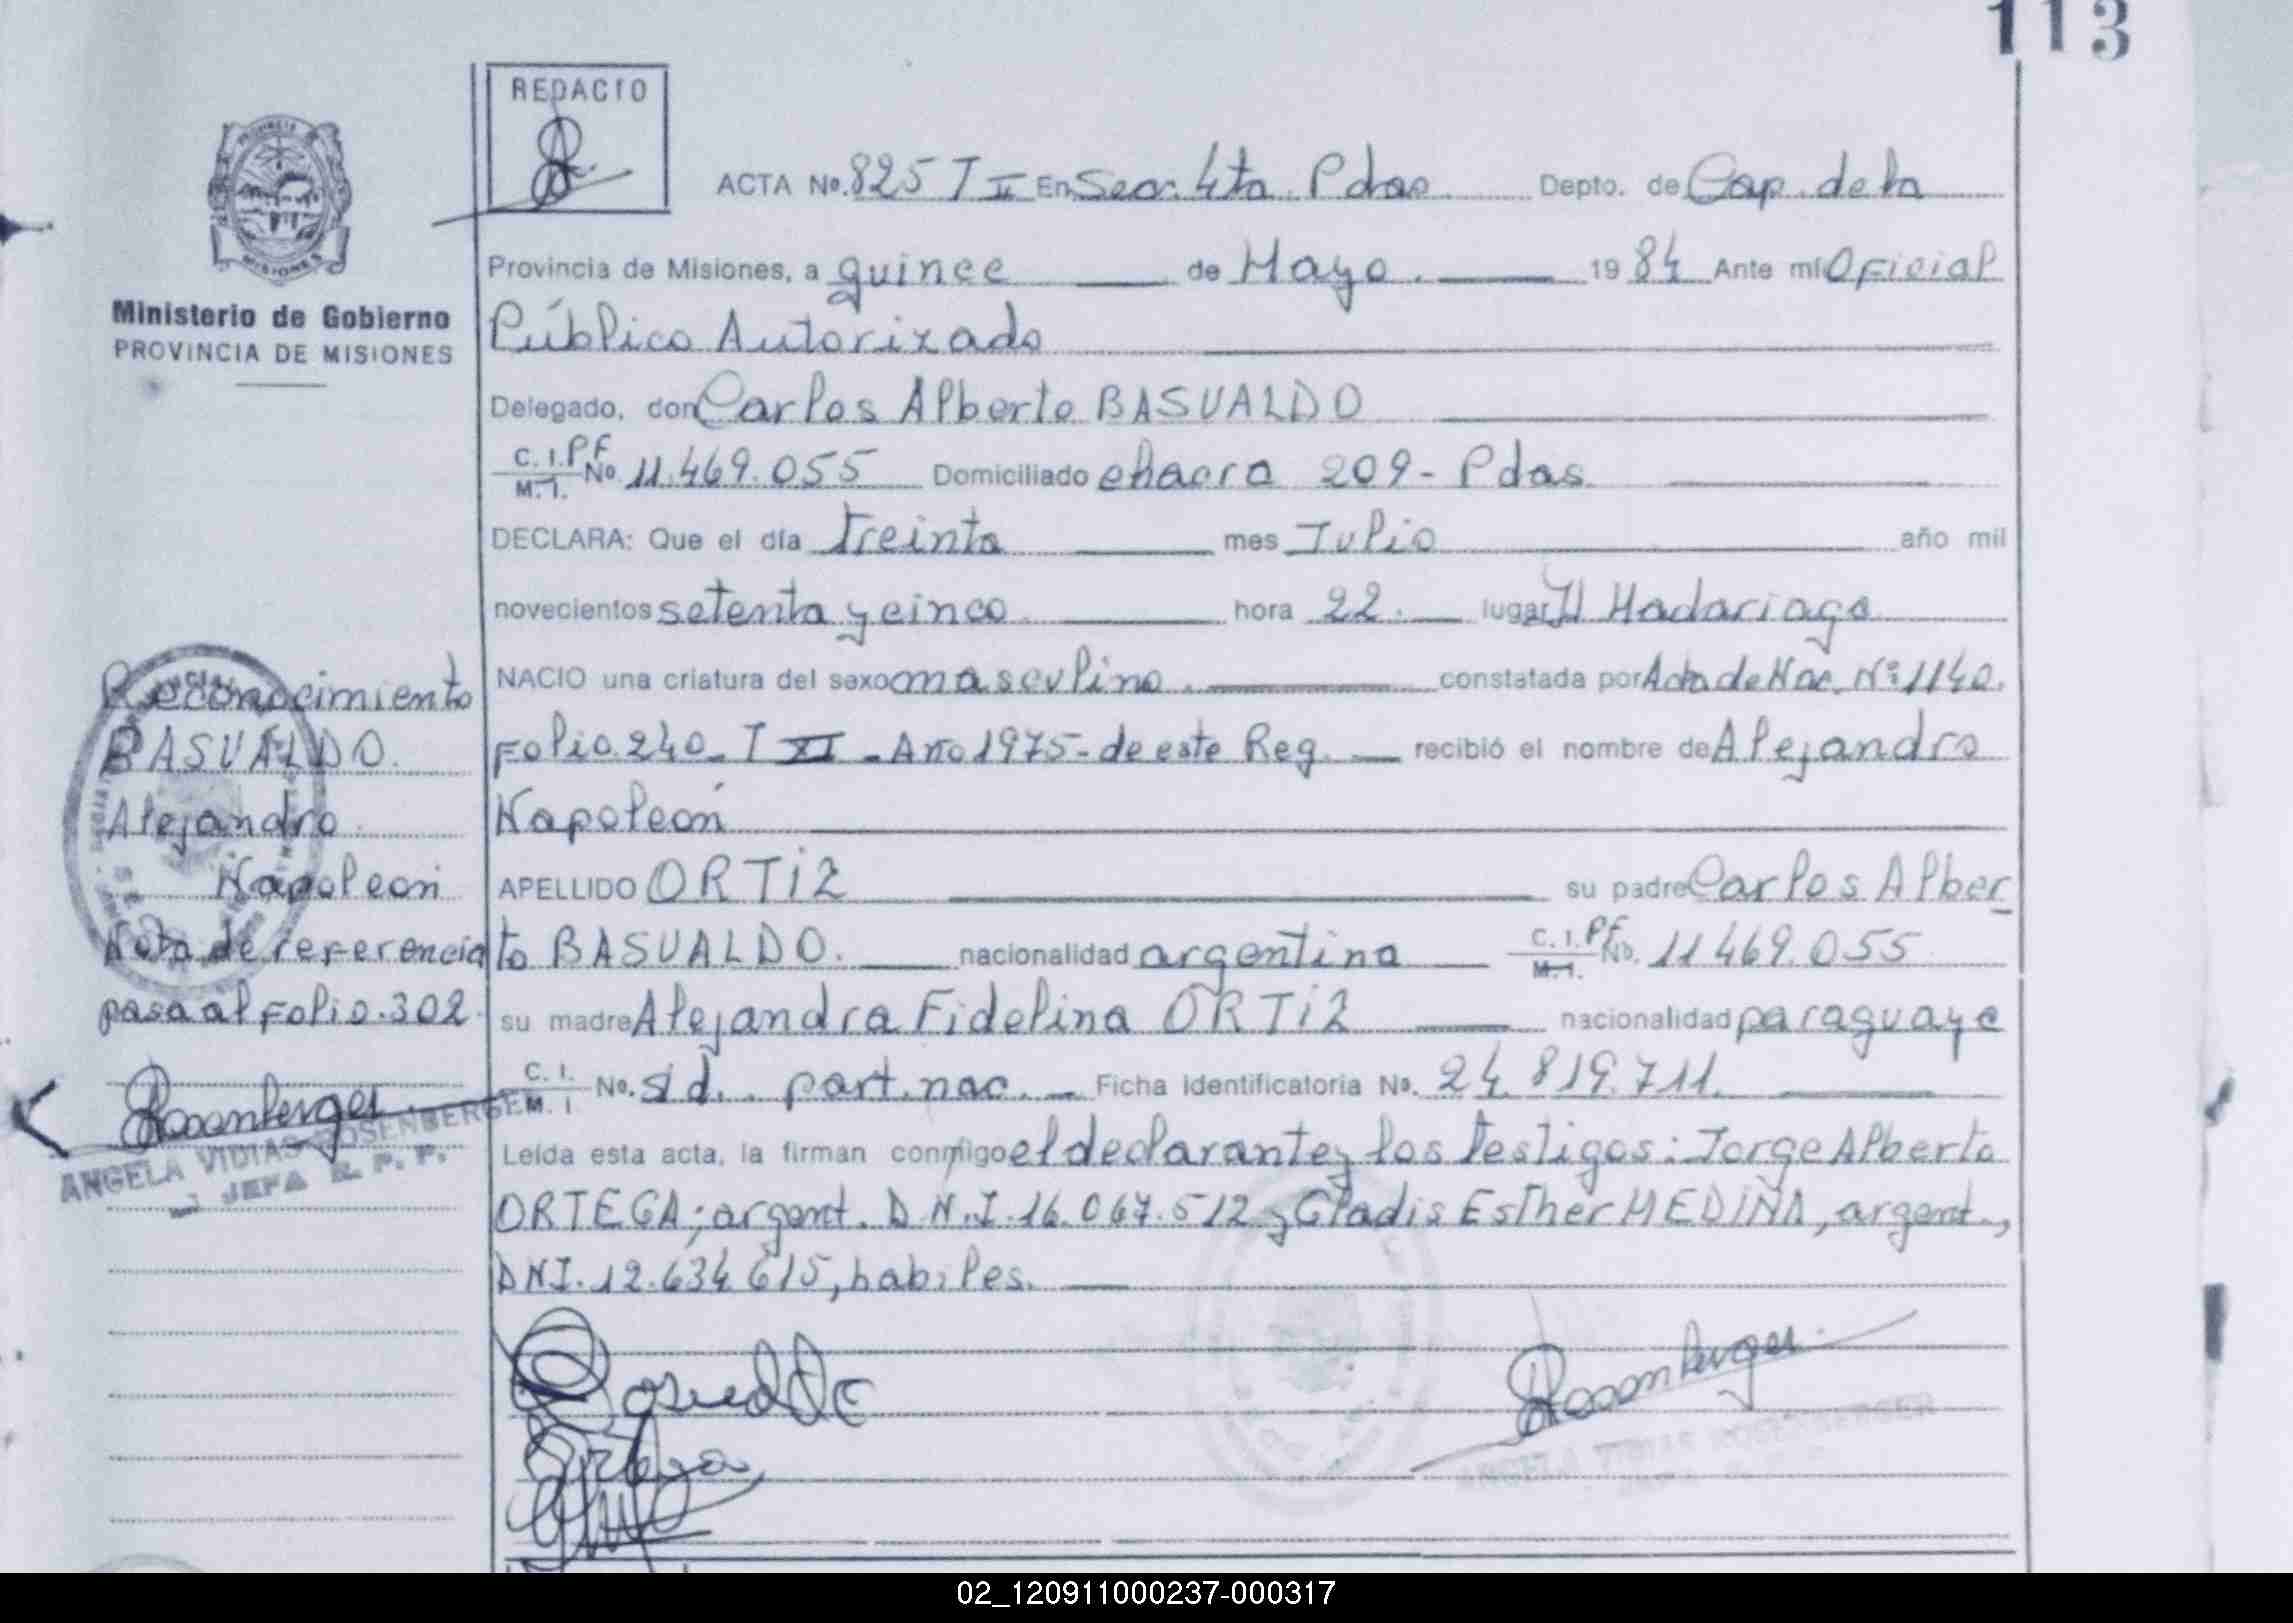 113
REDACTO
ACTA No. 825 T II En Secc. 4ta. Pdas. Depto. de Cap. de la
Provincia de Misiones, a quince de Mayo. 1984 Ante mí Oficial
Público Autorizado
Delegado, don Carlos Alberto BASUALDO
C. I. P F M. I. No. 11.469.055 Domiciliado chacra 209 - Pdas.
DECLARA: Que el día treinta mes Julio año mil
novecientos setenta y cinco hora 22. lugar H Madariaga
NACIO una criatura del sexo masculino. constatada por Acta de Nac. Nº 1140.
Folio 240 - T XI - Año 1975 - de este Reg. recibió el nombre de Alejandro
Napoleón
APELLIDO ORTIZ su padre Carlos Alber
to BASUALDO. nacionalidad argentina C. I. P F M. I. No. 11469.055
su madre Alejandra Fidelina ORTIZ nacionalidad paraguaya
C. I. M. I No. s/d. part. nac. Ficha identificatoria No. 24.819.711.
Leída esta acta, la firman conmigo el declarante y los testigos: Jorge Alberto
ORTEGA; argent. D.N.I. 16.067.512 y Gladis Esther MEDINA, argent.,
DNI. 12.634.615, habiles.
PROVINCIA
MISIONES
Ministerio de Gobierno
PROVINCIA DE MISIONES
Reconocimiento
BASUALDO.
Alejandro
Napoleon
Nota de referencia
pasa al Folio. 302.
Rosenberger
ANGELA VIDIAS ROSENBERGER
JEFA R. P. P.
Basualdo
Ortega
Rosenberger
ANGELA VIDIAS ROSENBERGER
02_120911000237-000317